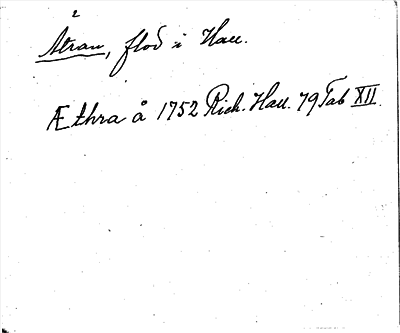 2
Ätran, flod i Hall.
Æthra å 1752 Rich. Hall. 79 Tab XII.